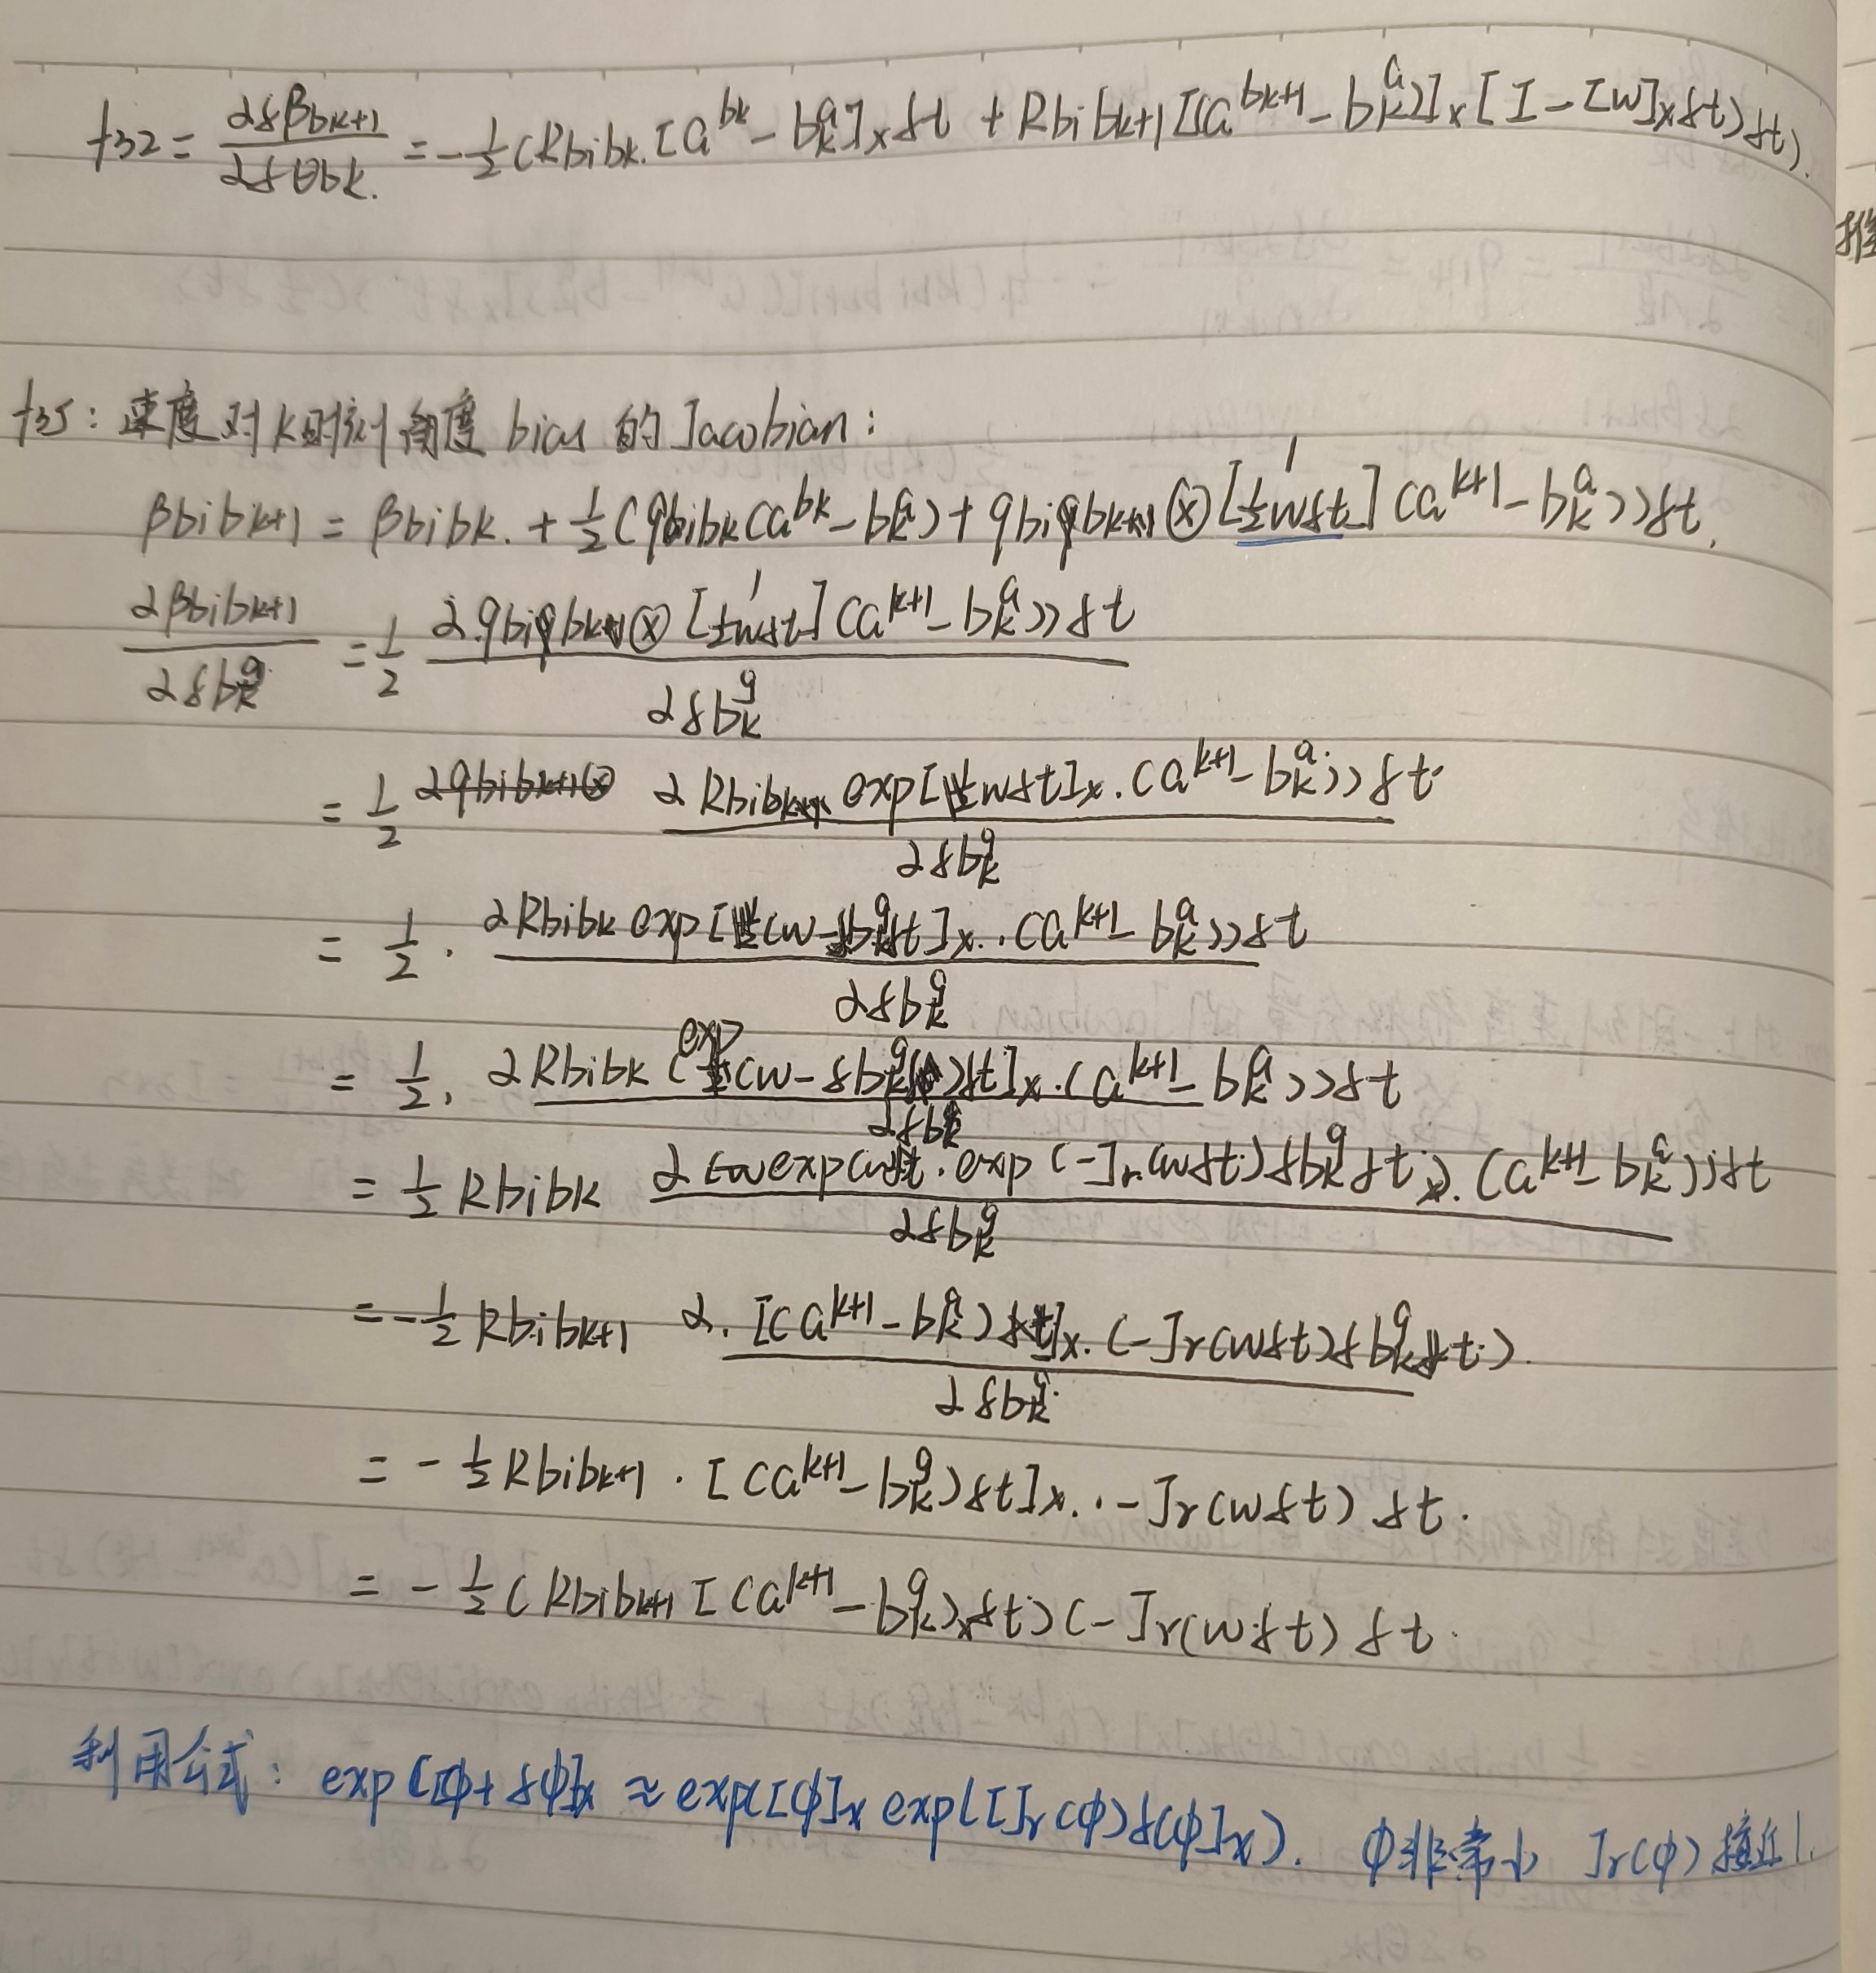 f32 = ∂δβbk+1 / ∂δθbk. = -1/2 (Rbibk. [a^bk - b_k^a]x δt + Rbibk+1 [(a^bk+1 - b_k^a)]x [I - [w]x δt) δt).
推
f35: 速度对k时刻角度 bias 的 Jacobian:
βbibk+1 = βbibk. + 1/2 (qbibk (a^bk - b_k^a) + qbibk ⊗ [1 1/2wδt] (a^k+1 - b_k^a)) δt,
∂βbibk+1 / ∂δb_k^g = 1/2 ∂.qbibk ⊗ [1 1/2wδt] (a^k+1 - b_k^a)) δt / ∂δb_k^g
= 1/2 ∂Rbibk exp[wδt]x. (a^k+1 - b_k^a)) δt / ∂δb_k^g
= 1/2 . ∂Rbibk exp[(w - δb_k^g)δt]x.. (a^k+1 - b_k^a)) δt / ∂δb_k^g
= 1/2. ∂Rbibk (exp (w - δb_k^g)δt]x. (a^k+1 - b_k^a)) δt / ∂δb_k^g
= 1/2 Rbibk ∂ exp(wδt. exp (-Jr(wδt) δb_k^g δt)x). (a^k+1 - b_k^a)) δt / ∂δb_k^g
= -1/2 Rbibk+1 ∂. [(a^k+1 - b_k^a) δt]x. (-Jr(wδt) δb_k^g δt). / ∂δb_k^g
= - 1/2 Rbibk+1 . [(a^k+1 - b_k^a) δt]x. . -Jr(wδt) δt.
= - 1/2 (Rbibk+1 [(a^k+1 - b_k^a)x δt) (-Jr(wδt) δt.
利用公式: exp[[φ+δφ]x ≈ exp([φ]x exp([Jr(φ)δφ]x). φ非常小 Jr(φ)接近1.